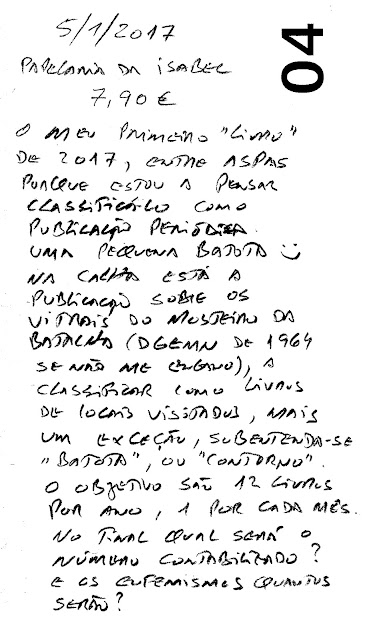 04
5/1/2017
PAPELARIA DA ISABEL
7,90 €
O MEU PRIMEIRO "LIVRO"
DE 2017, ENTRE ASPAS
PORQUE ESTOU A PENSAR
CLASSIFICÁ-LO COMO
PUBLICAÇÃO PERIÓDICA.
UMA PEQUENA BATOTA :)
NA CALHA ESTÁ A
PUBLICAÇÃO SOBRE OS
VITRAIS DO MOSTEIRO DA
BATALHA (DGEMN DE 1964
SE NÃO ME ENGANO), A
CLASSIFICAR COMO LIVROS
DE LOCAIS VISITADOS, MAIS
UM EXCEÇÃO, SUBENTENDA-SE
"BATOTA", OU "CONTORNO".
O OBJETIVO SÃO 12 LIVROS
POR ANO, 1 POR CADA MÊS.
NO FINAL QUAL SERÁ O
NÚMERO CONTABILIZADO?
E OS EUFEMISMOS QUANTOS
SERÃO?